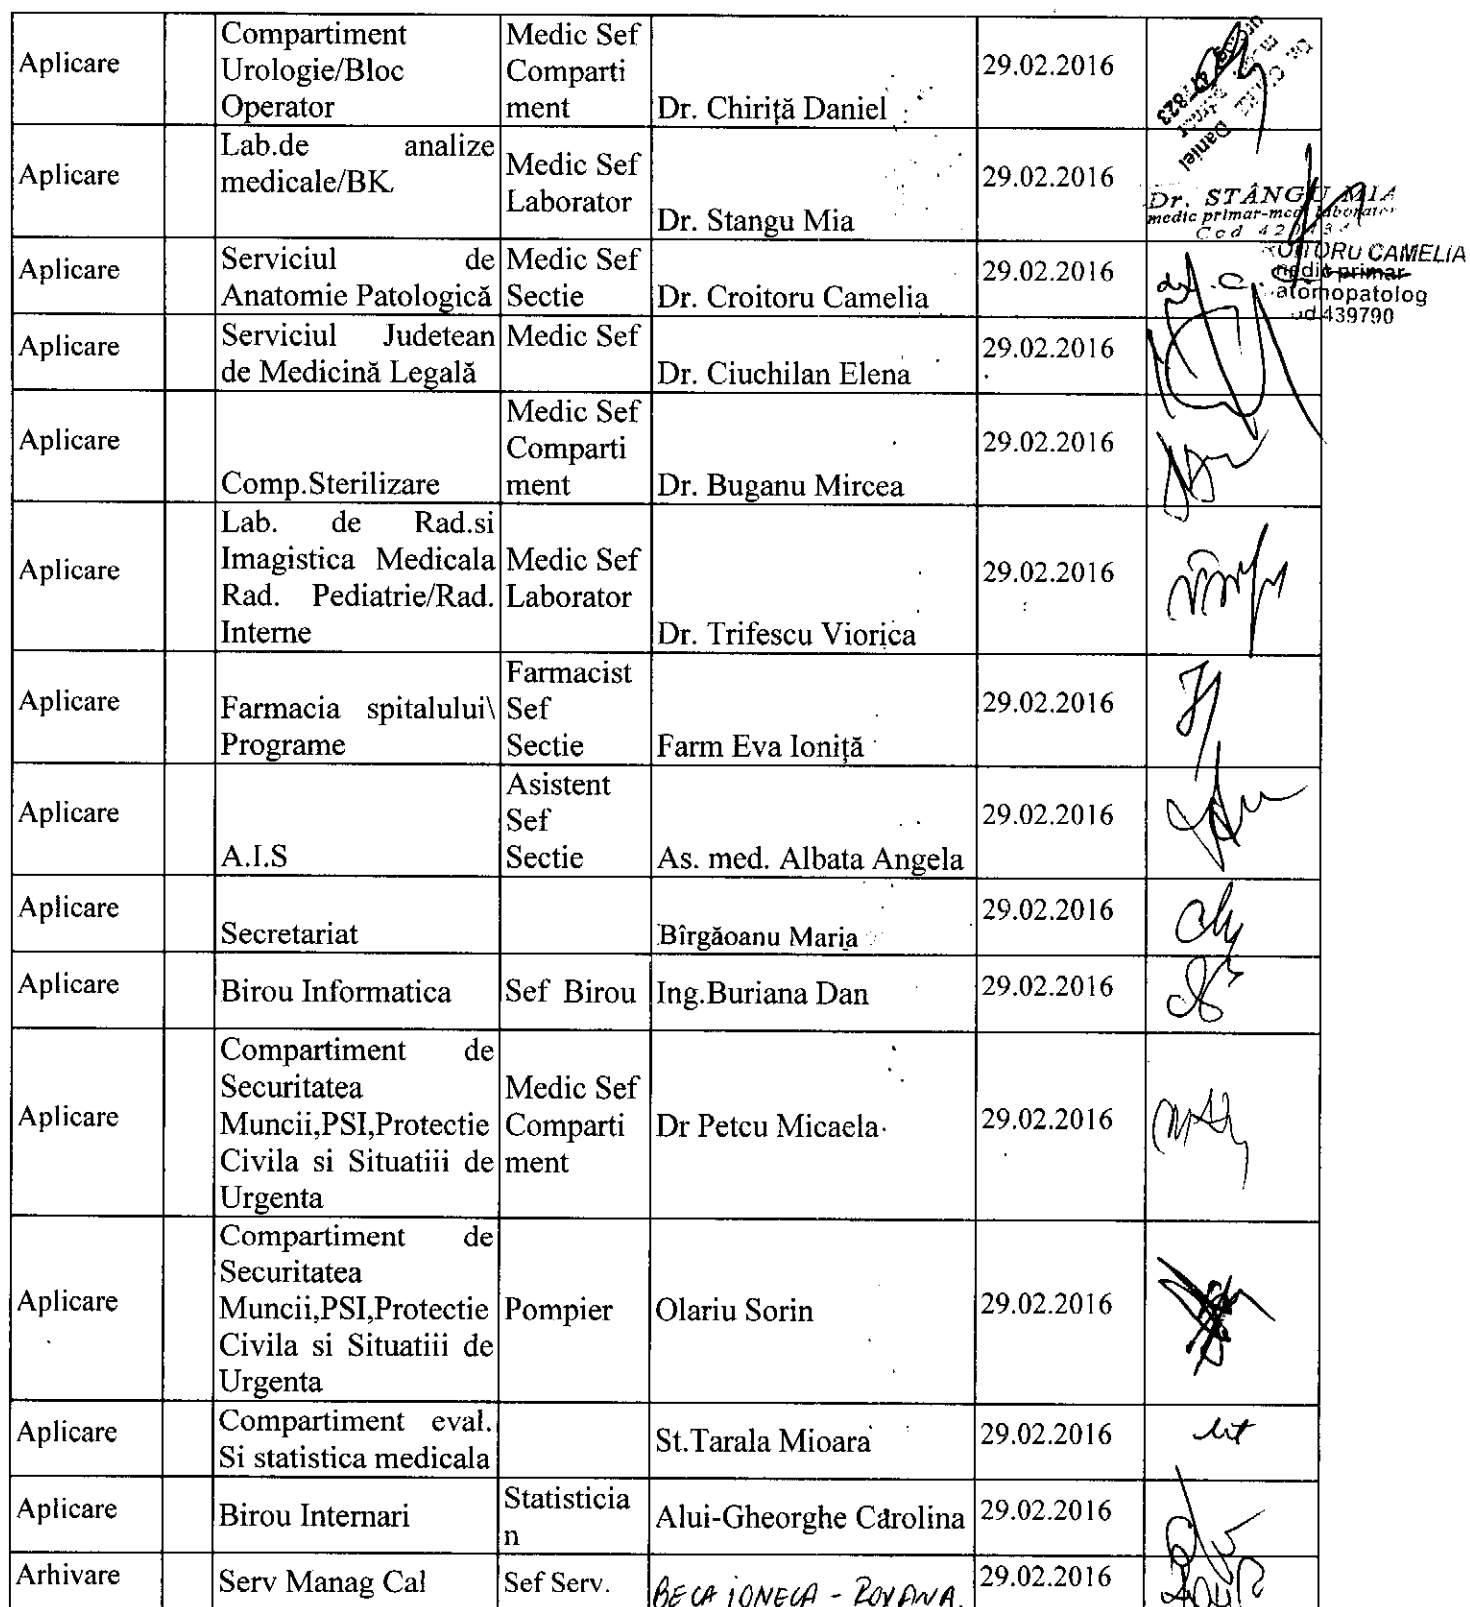 Aplicare
Compartiment
Urologie/Bloc
Operator
Medic Sef
Comparti
ment
Dr. Chiriță Daniel
29.02.2016
Daniel
Aplicare
Lab.de analize
medicale/BK
Medic Sef
Laborator
Dr. Stangu Mia
29.02.2016
Dr. STÂNGU MIA
medic primar-med laborator
Cod
Aplicare
Serviciul de
Anatomie Patologică
Medic Sef
Sectie
Dr. Croitoru Camelia
29.02.2016
CAMELIA
medic primar
439790
Aplicare
Serviciul Judetean
de Medicină Legală
Medic Sef
Dr. Ciuchilan Elena
29.02.2016
Aplicare
Comp.Sterilizare
Medic Sef
Comparti
ment
Dr. Buganu Mircea
29.02.2016
Aplicare
Lab. de Rad.si
Imagistica Medicala
Rad. Pediatrie/Rad.
Interne
Medic Sef
Laborator
Dr. Trifescu Viorica
29.02.2016
Aplicare
Farmacia spitalului\
Programe
Farmacist
Sef
Sectie
Farm Eva Ioniță
29.02.2016
Aplicare
A.I.S
Asistent
Sef
Sectie
As. med. Albata Angela
29.02.2016
Aplicare
Secretariat
Bîrgăoanu Maria
29.02.2016
Aplicare
Birou Informatica
Sef Birou
Ing.Buriana Dan
29.02.2016
Aplicare
Compartiment de
Securitatea
Muncii,PSI,Protectie
Civila si Situatiii de
Urgenta
Medic Sef
Comparti
ment
Dr Petcu Micaela
29.02.2016
Aplicare
Compartiment de
Securitatea
Muncii,PSI,Protectie
Civila si Situatiii de
Urgenta
Pompier
Olariu Sorin
29.02.2016
Aplicare
Compartiment eval.
Si statistica medicala
St.Tarala Mioara
29.02.2016
Aplicare
Birou Internari
Statisticia
n
Alui-Gheorghe Carolina
29.02.2016
Arhivare
Serv Manag Cal
Sef Serv.
29.02.2016